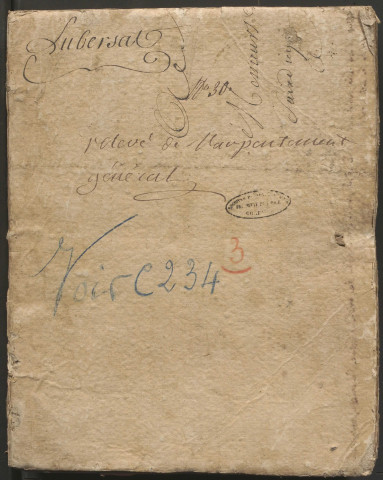 Lubersat
No 30
relevé de l'arpentement
général
3
Voir C 234